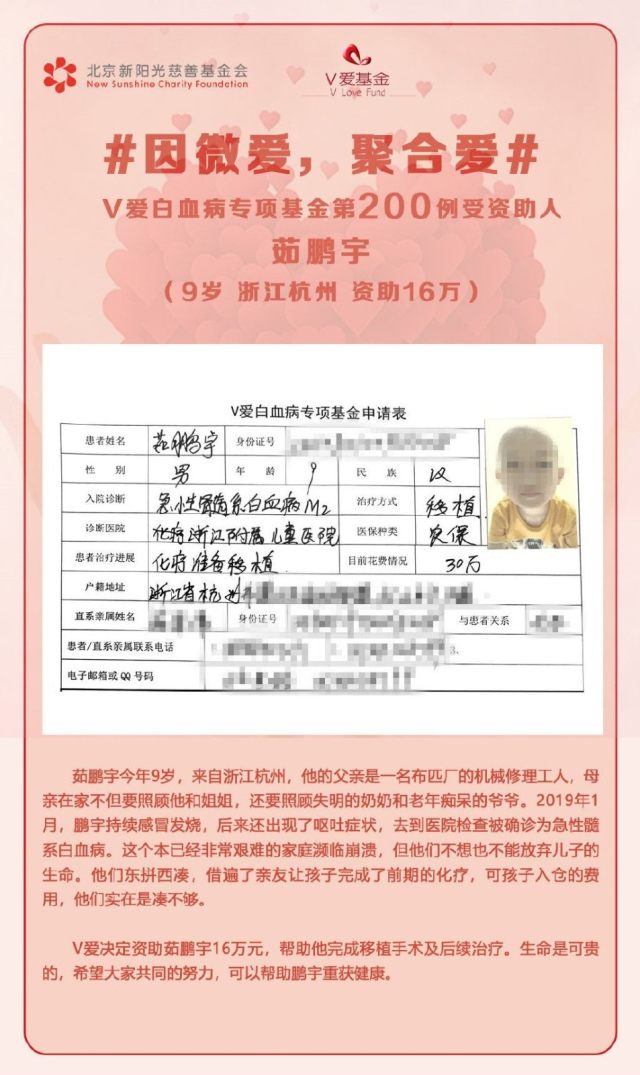 北京新阳光慈善基金会
New Sunshine Charity Foundation
V爱基金
V Love Fund
#因微爱，聚合爱#
V爱白血病专项基金第200例受资助人
茹鹏宇
（9岁 浙江杭州 资助16万）
V爱白血病专项基金申请表
患者姓名 茹鹏宇 身份证号
性 别 男 年 龄 9 民 族 汉
入院诊断 急性髓系白血病M2 治疗方式 移植
诊断医院 浙江附属儿童医院 医保种类 农保
患者治疗进展 化疗准备移植 目前花费情况 30万
户籍地址 浙江省杭州
直系亲属姓名 身份证号 与患者关系
患者/直系亲属联系电话 3、
电子邮箱或QQ号码
茹鹏宇今年9岁，来自浙江杭州，他的父亲是一名布匹厂的机械修理工人，母
亲在家不但要照顾他和姐姐，还要照顾失明的奶奶和老年痴呆的爷爷。2019年1
月，鹏宇持续感冒发烧，后来还出现了呕吐症状，去到医院检查被确诊为急性髓
系白血病。这个本已经非常艰难的家庭濒临崩溃，但他们不想也不能放弃儿子的
生命。他们东拼西凑，借遍了亲友让孩子完成了前期的化疗，可孩子入仓的费
用，他们实在是凑不够。
V爱决定资助茹鹏宇16万元，帮助他完成移植手术及后续治疗。生命是可贵
的，希望大家共同的努力，可以帮助鹏宇重获健康。